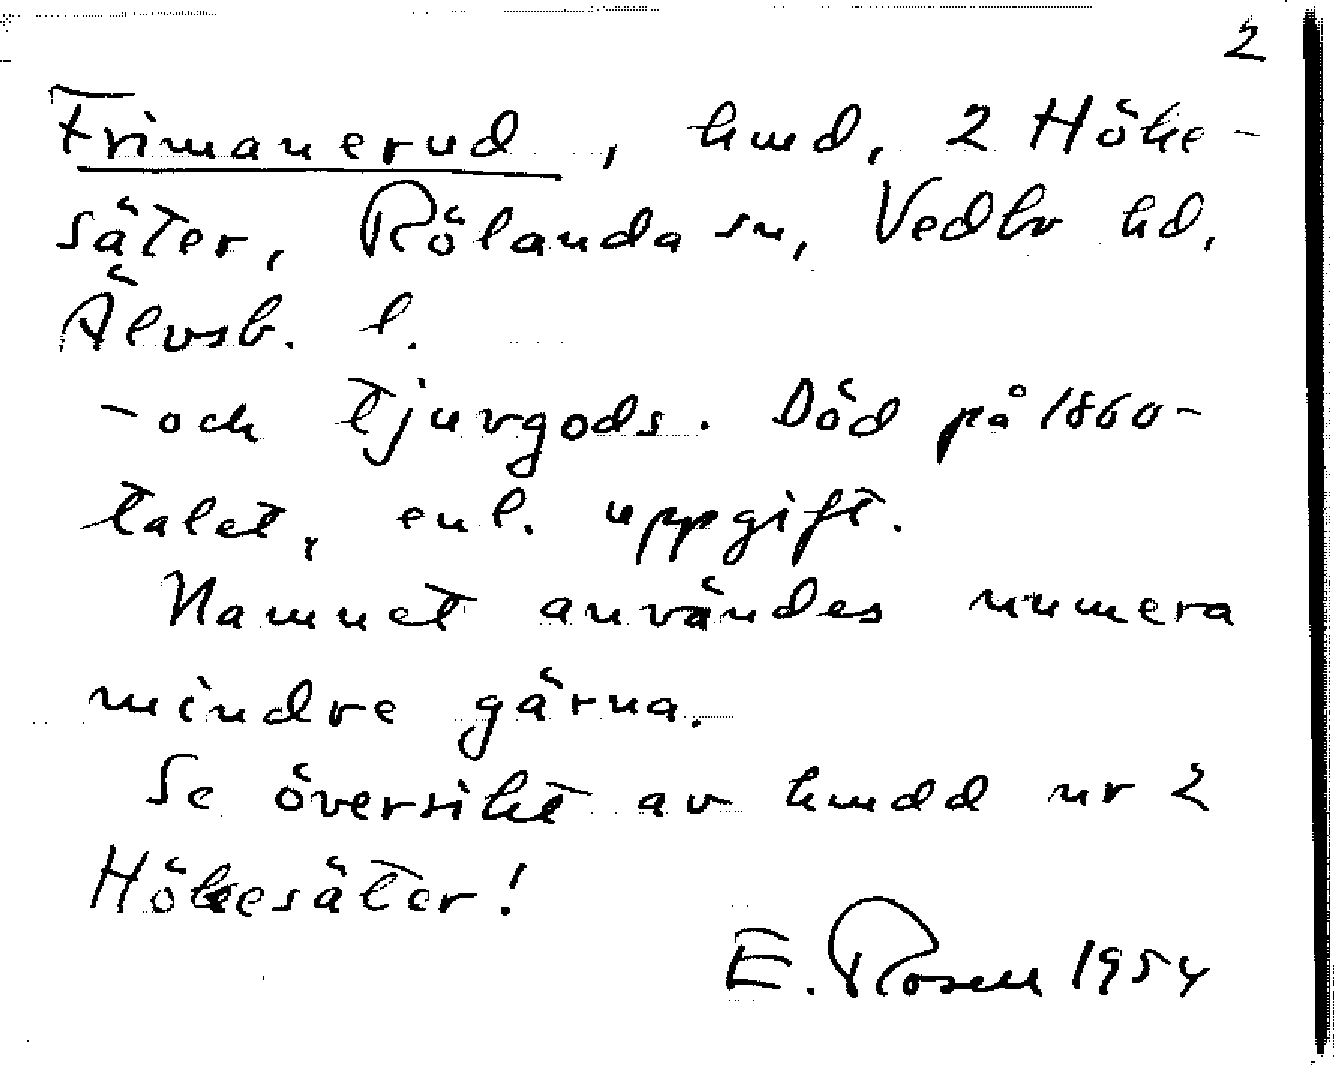 2
Frimanerud, hmd, 2 Höke-
säter, Rölanda sn, Vedbo hd,
Älvsb. l.
- och tjuvgods. Död på 1860-
talet, enl. uppgift.
Namnet användes numera
mindre gärna.
Se översikt av hmdd nr 2
Hökesäter!
E. Rosell 1954